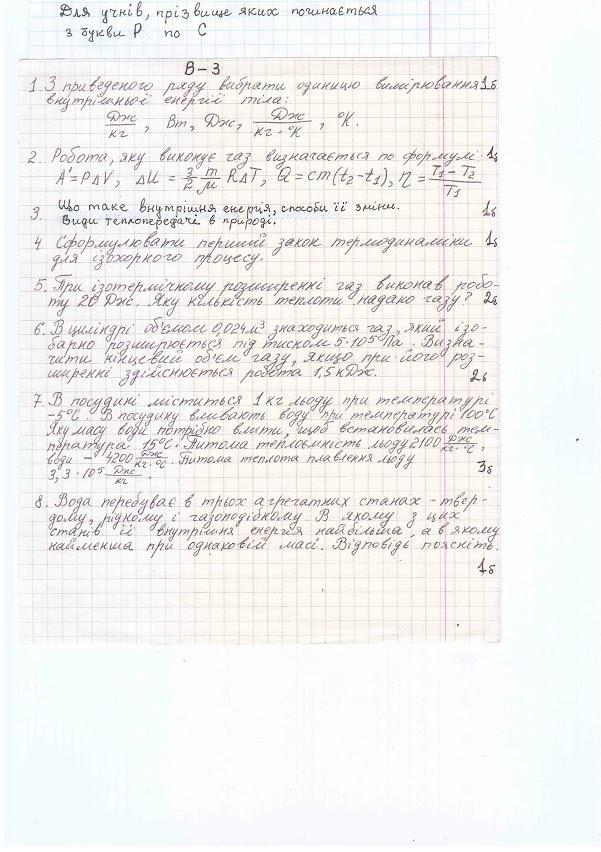 Для учнів, прізвище яких починається
з букви Р по С
В-3
1. З приведеного ряду вибрати одиницю вимірювання 1б
внутрішньої енергії тіла:
Дж/кг, Вт, Дж, Дж/кг·°К, °К.
2. Робота, яку виконує газ визначається по формулі 1б
A' = PΔV, ΔU = 3/2 m/μ RΔT, Q = cm(t₂-t₁), η = T₁-T₂/T₁
3. Що таке внутрішня енергія, способи її зміни.
Види теплопередачі в природі. 1б
4. Сформулювати перший закон термодинаміки 1б
для ізохорного процесу.
5. При ізотермічному розширенні газ виконав робо-
ту 20 Дж. Яку кількість теплоти надано газу? 2б
6. В циліндрі об'ємом 0,024м³ знаходиться газ, який ізо-
барно розширюється під тиском 5·10⁵Па. Визна-
чити кінцевий об'єм газу, якщо при його роз-
ширенні здійснюється робота 1,5 кДж.
2б
7. В посудині міститься 1 кг льоду при температурі
-5°С. В посудину вливають воду при температурі 100°С
Яку масу води потрібно влити, щоб встановилась тем-
пература 15°С. Питома теплоємність льоду 2100 Дж/кг·°С,
води - 4200 Дж/кг·°С. Питома теплота плавлення льоду
3,3·10⁵ Дж/кг. 3б
8. Вода перебуває в трьох агрегатних станах - твер-
дому, рідкому і газоподібному. В якому з цих
станів її внутрішня енергія найбільша, а в якому
найменша при однаковій масі. Відповідь поясніть.
1б